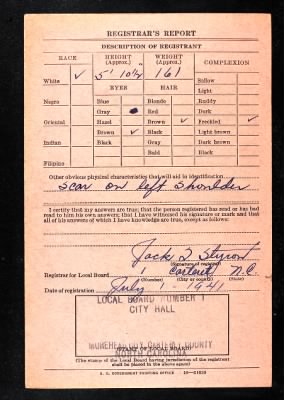 REGISTRAR'S REPORT
DESCRIPTION OF REGISTRANT
RACE HEIGHT (Approx.) WEIGHT (Approx.) COMPLEXION
White ✓ 5' 10½ 161 Sallow
EYES HAIR Light
Negro Blue Blonde Ruddy
Gray Red Dark
Oriental Hazel Brown ✓ Freckled ✓
Brown ✓ Black Light brown
Indian Black Gray Dark brown
Bald Black
Filipino
Other obvious physical characteristics that will aid in identification
Scar on left shoulder
I certify that my answers are true; that the person registered has read or has had
read to him his own answers; that I have witnessed his signature or mark and that
all of his answers of which I have knowledge are true, except as follows:
Jack Styron
(Signature of registrar)
Registrar for Local Board 1 Carteret N.C.
(Number) (City or county) (State)
Date of registration July 1 - 1941
LOCAL BOARD NUMBER 1
CITY HALL
MOREHEAD CITY CARTERET COUNTY
NORTH CAROLINA
(STAMP OF LOCAL BOARD)
(The stamp of the Local Board having jurisdiction of the registrant
shall be placed in the above space)
U. S. GOVERNMENT PRINTING OFFICE